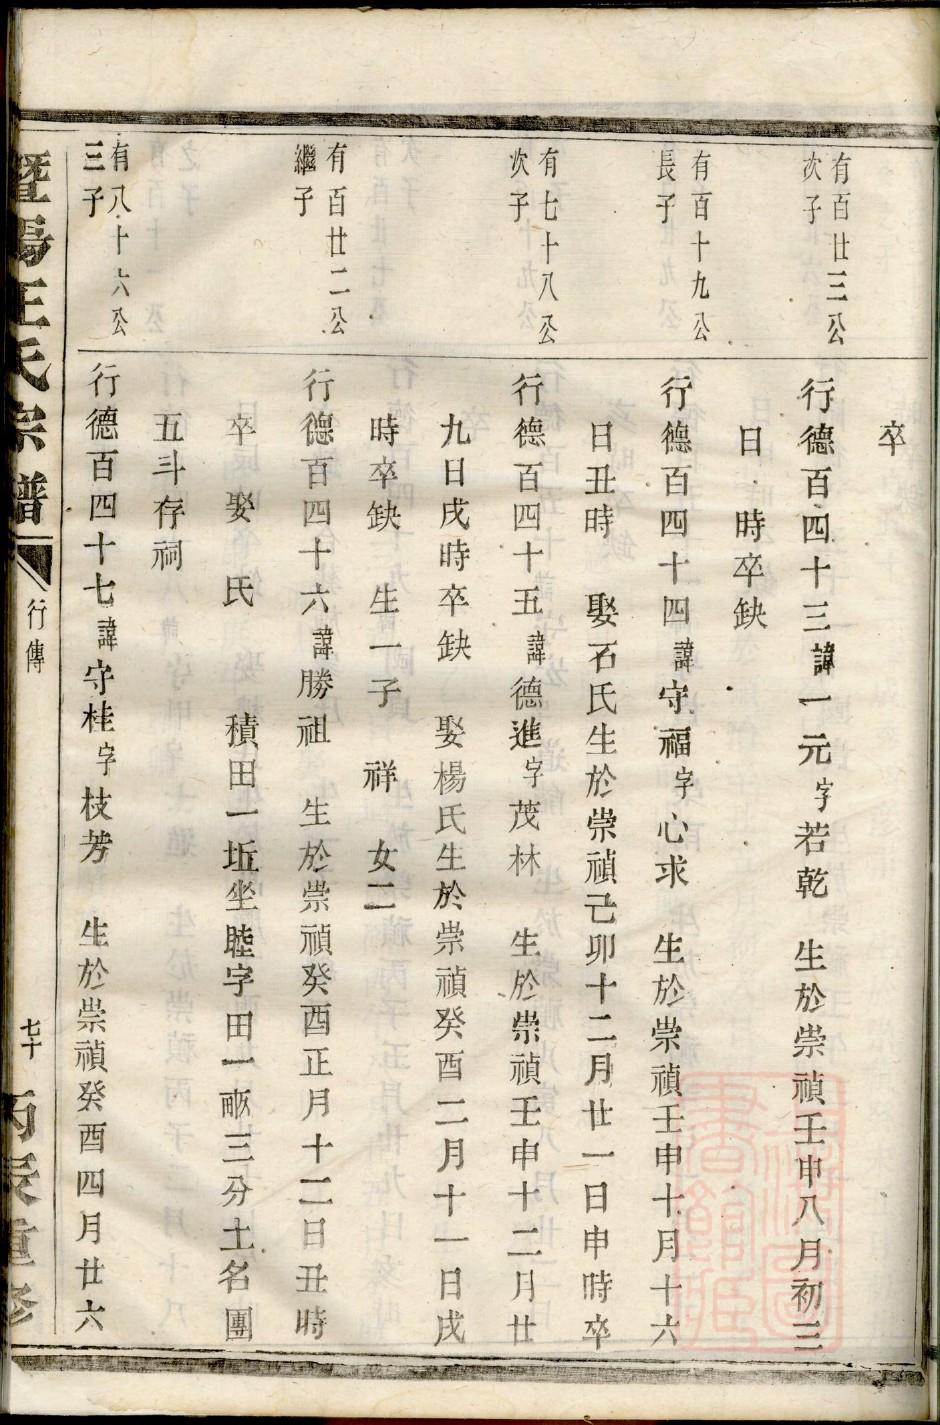 卒
有百廿三公
次子
行德百四十三諱一元字若乾 生於崇禎壬申八月初三
日 時卒缺
有百十九公
長子
行德百四十四諱守福字心求 生於崇禎壬申十月十六
日丑時 娶石氏生於崇禎己卯十二月廿一日申時卒
有七十八公
次子
行德百四十五諱德進字茂林 生於崇禎壬申十二月廿
九日戌時卒缺 娶楊氏生於崇禎癸酉二月十一日戌
時卒缺 生一子 祥 女二
有百廿二公
繼子
行德百四十六諱勝祖 生於崇禎癸酉正月十二日丑時
卒 娶 氏 積田一坵坐睦字田一畝三分土名團
五斗存祠
有八十六公
三子
行德百四十七諱守桂字枝芳 生於崇禎癸酉四月廿六
暨陽王氏宗譜
行傳
七十
丙辰重修